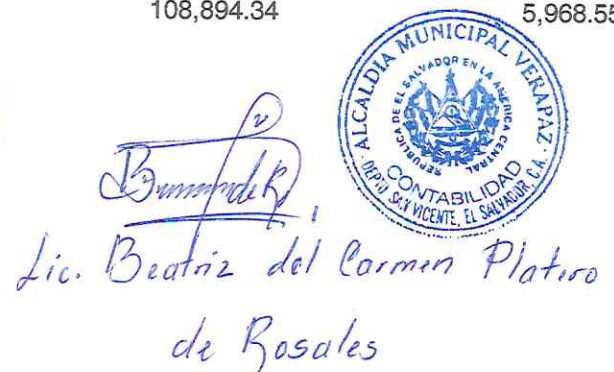 108,894.34 5,968.55
ALCALDIA MUNICIPAL VERAPAZ
REPUBLICA DE EL SALVADOR EN LA AMERICA CENTRAL
CONTABILIDAD
DEPTO SAN VICENTE, EL SALVADOR, C.A.
Lic. Beatriz del Carmen Platero
de Rosales